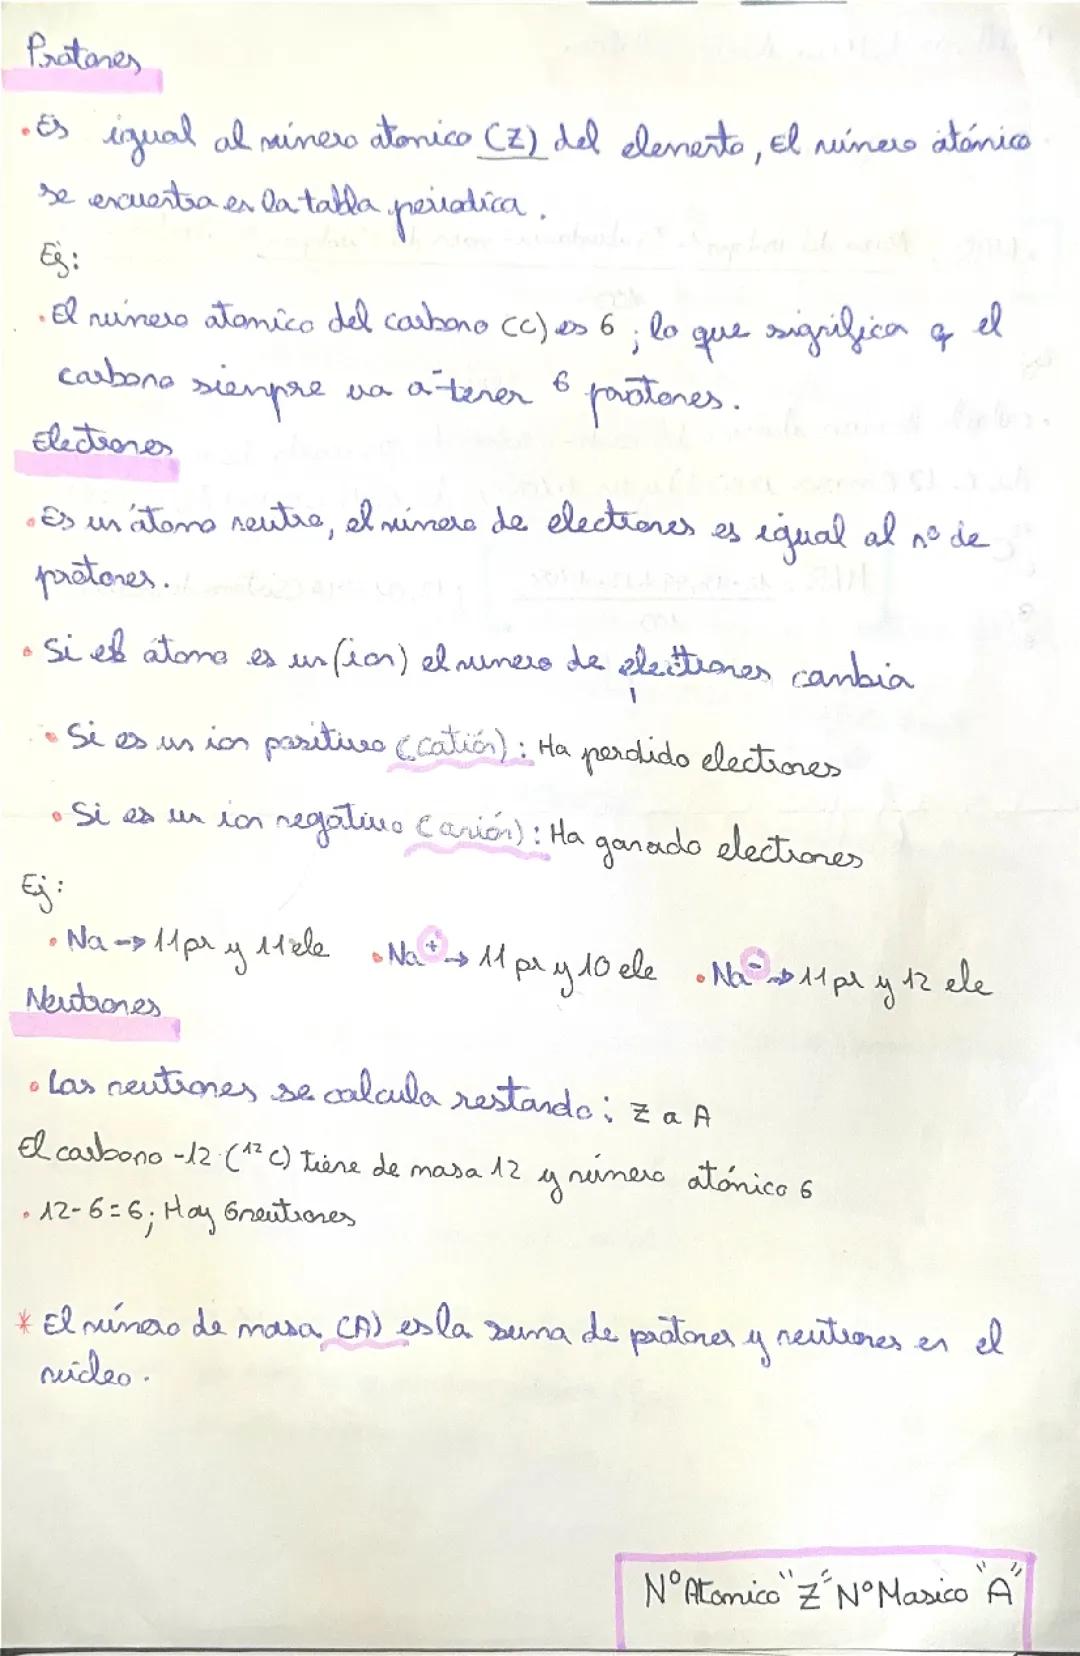 Protones
• Es igual al número atomico (Z) del elemento, El número átómico
se encuentra en la tabla periodica.
Ej:
• El número atomico del carbono (C) es 6; lo que significa q el
carbono siempre va a tener 6 protones.
Electrones
• Es un átomo neutro, el número de electrones es igual al nº de
protones.
• Si el átomo es un (ion) el numero de electrones cambia
• Si es un ion positivo (catión): Ha perdido electrones
• Si es un ion negativo (anión): Ha ganado electrones
Ej:
• Na → 11 pr y 11 ele • Na⁺ → 11 pr y 10 ele • Na⁻ → 11 pr y 12 ele
Neutrones
• Los neutrones se calcula restando: Z a A
El carbono -12 (¹²C) tiene de masa 12 y número atómico 6
• 12-6=6; Hay 6 neutrones
* El número de masa (A) es la suma de protones y neutrones en el
núcleo.
Nº Atomico "Z" Nº Masico "A"